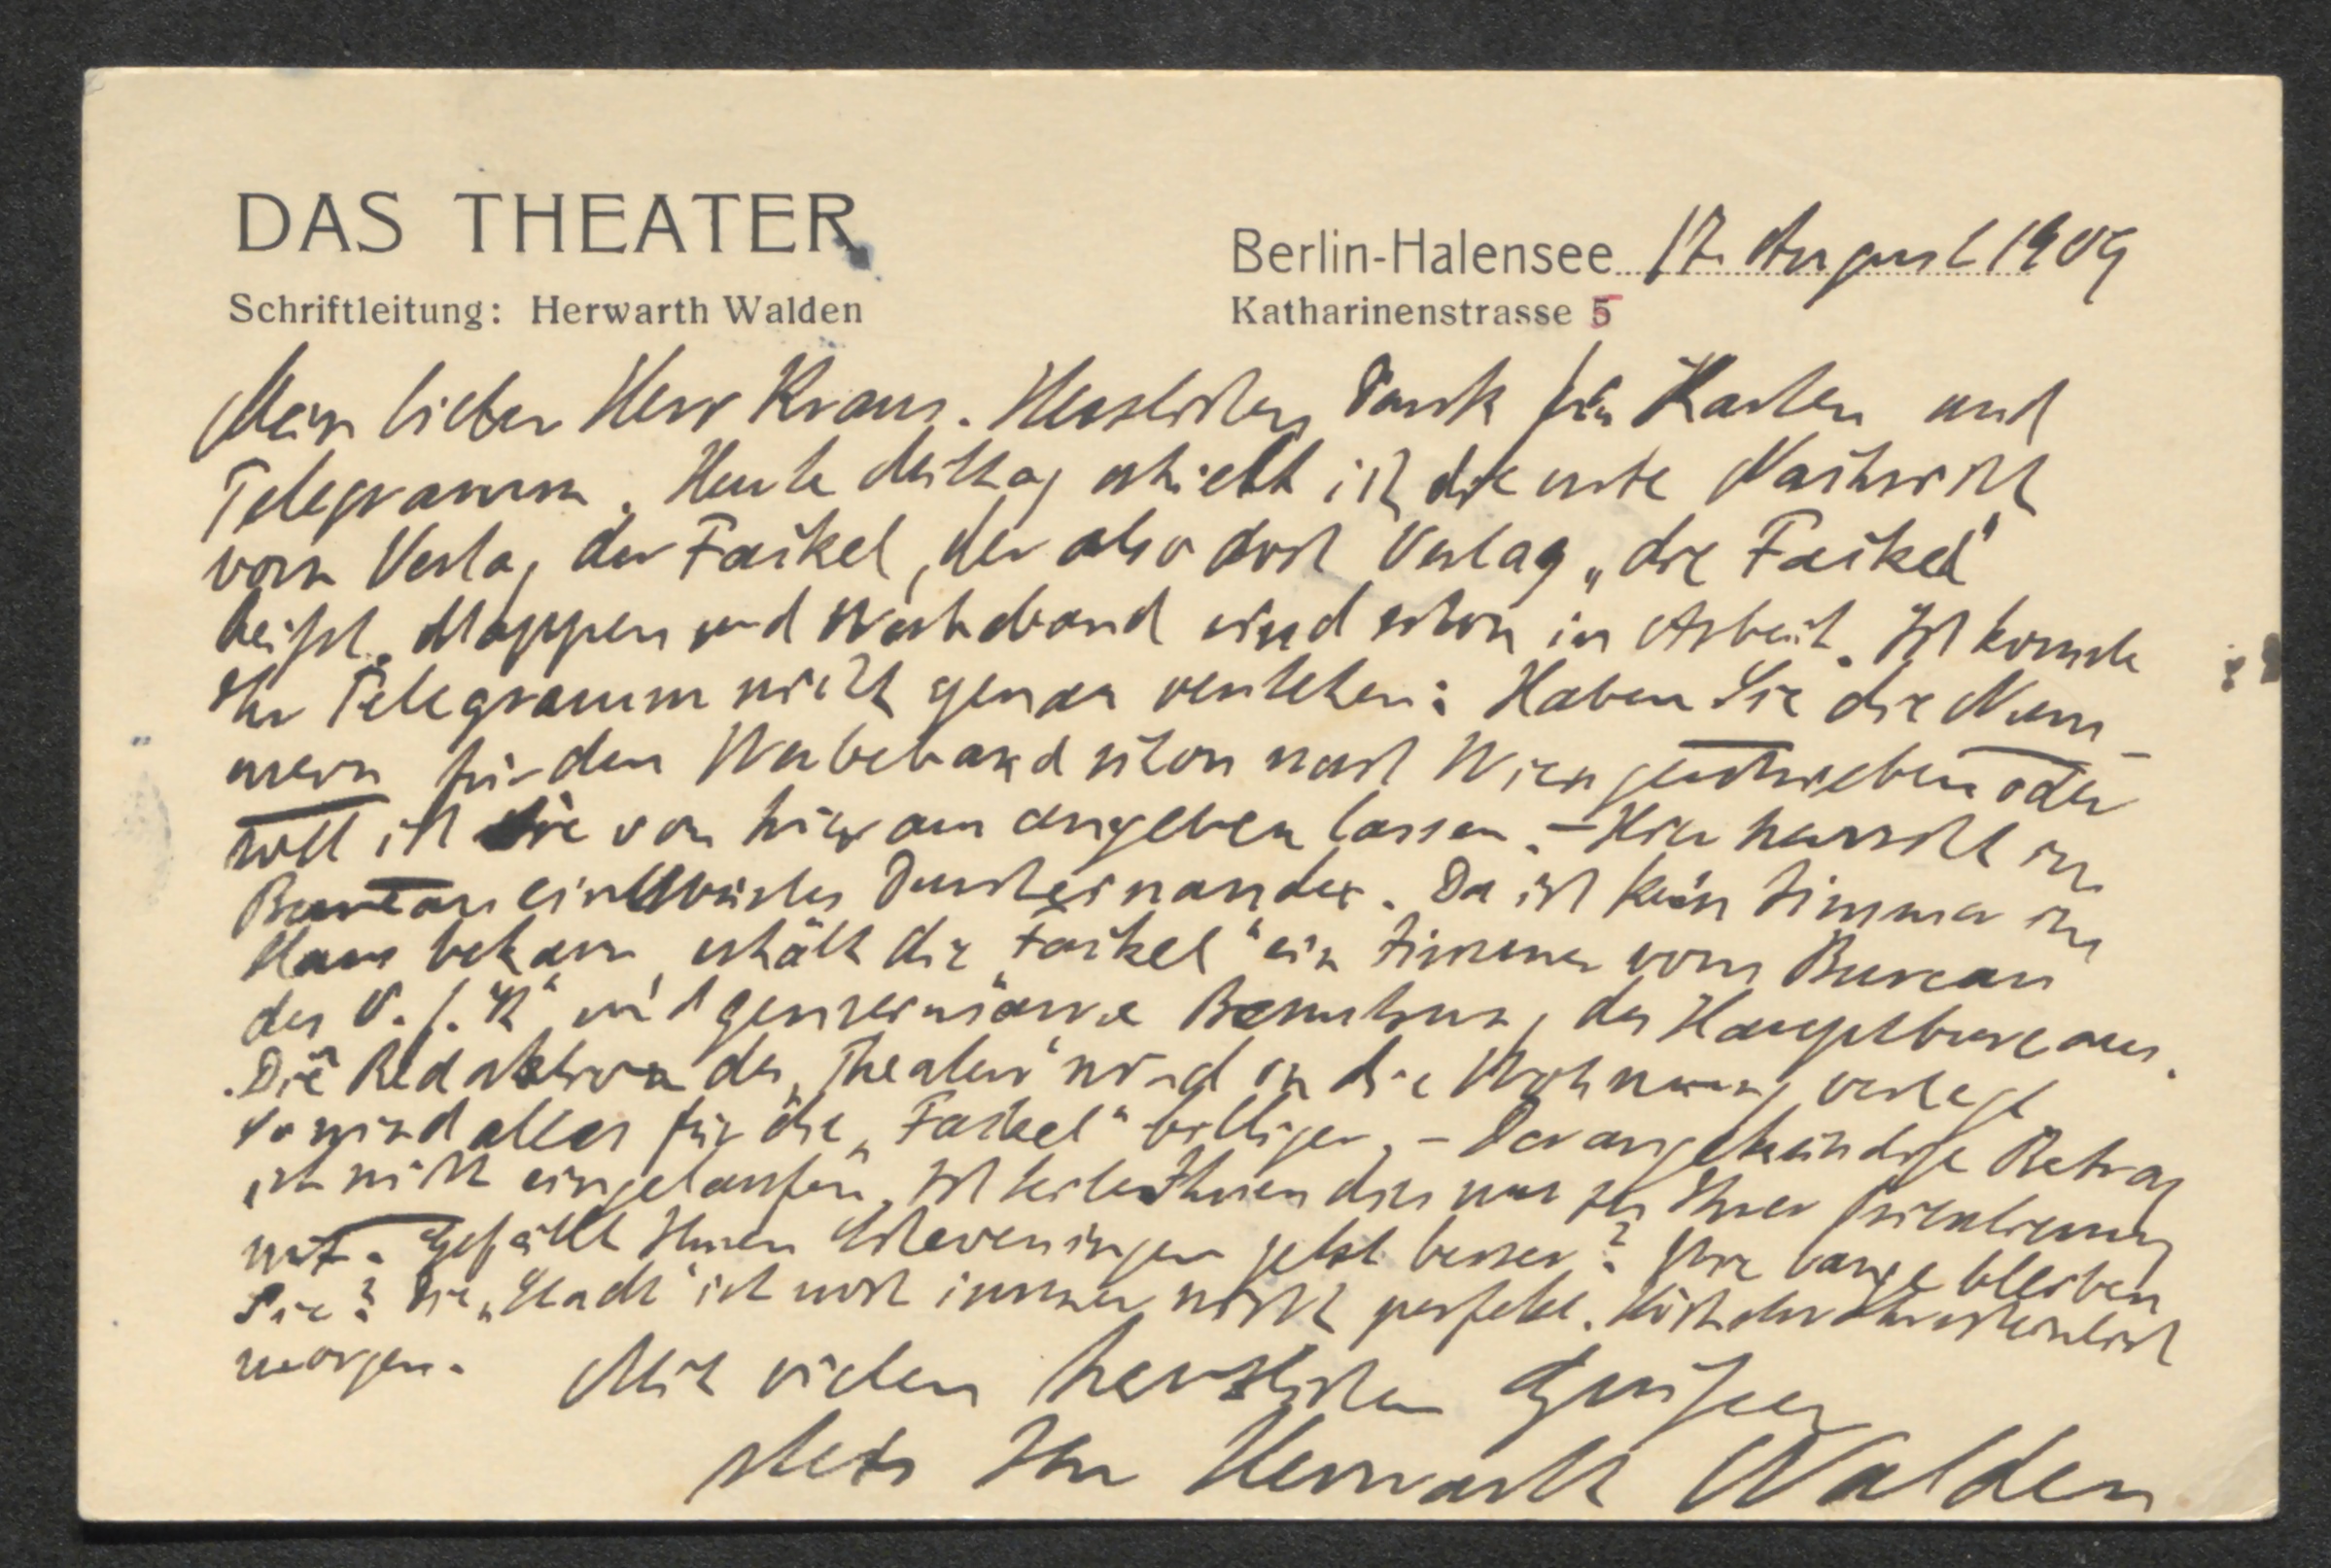 DAS THEATER
Schriftleitung: Herwarth Walden
Berlin-Halensee 17. August 1909
Katharinenstrasse 5
Mein lieber Herr Kraus. Herzlichen Dank für Karten und
Telegramm. Heute Mittag erhielt ich die erste Nachricht
vom Verlag der Fackel, der also doch Verlag „die Fackel"
heißt. Mappen und sind schon in Arbeit. Ich konnte
Ihr Telegramm nicht genau verstehen: Haben Sie die Num-
mern für den Werbeband schon nach Wien geschrieben oder
soll ich sie von hier aus angeben lassen. – Hier herrscht im
Bureau ein wüstes Durcheinander. Da ich kein Zimmer im
Haus bekam, erhält die „Fackel" ein Zimmer vom Bureau
des V. f. K" und gemeinsame Benutzung des Hauptbureaus.
Die Redaktion des „Theaters" wird in die Wohnung verlegt
So wird alles für die „Fackel" billiger. – Der angekündigte Betrag
ist nicht eingelaufen. Ich teile Ihnen dies nur zu Ihrer Orientierung
mit. Gefällt Ihnen Scheveningen jetzt besser? Wie lange bleiben
Sie? Die „Stadt" ist noch immer nicht perfekt.
morgen. Mit vielen herzlichen Grüßen
stets Ihr Herwarth Walden